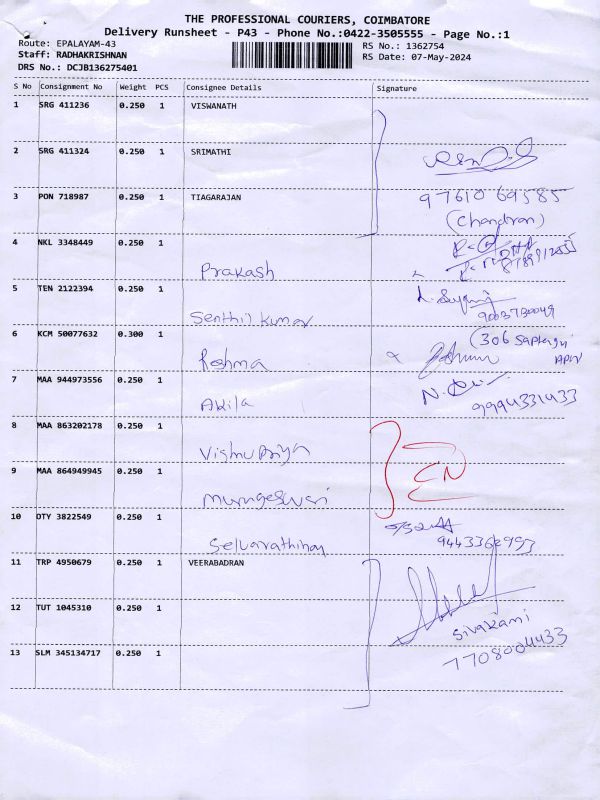 THE PROFESSIONAL COURIERS, COIMBATORE
Delivery Runsheet - P43 - Phone No.:0422-3505555 - Page No.:1
Route: EPALAYAM-43
RS No.: 1362754
Staff: RADHAKRISHNAN
RS Date: 07-May-2024
DRS No.: DCJB136275401
S No Consignment No Weight PCS Consignee Details Signature
1 SRG 411236 0.250 1 VISWANATH
2 SRG 411324 0.250 1 SRIMATHI
3 PON 718987 0.250 1 TIAGARAJAN
97610 69585
(Chandran)
4 NKL 3348449 0.250 1
Prakash
5 TEN 2122394 0.250 1
Senthil kumar
9003730049
6 KCM 50077632 0.300 1
(306 Saptagiri
Reshma
7 MAA 944973556 0.250 1
Akila
9994331433
8 MAA 863202178 0.250 1
Vishnu Priya
9 MAA 864949945 0.250 1
Murugeswari
10 OTY 3822549 0.250 1
Selvarathinam
9443362993
11 TRP 4950679 0.250 1 VEERABADRAN
12 TUT 1045310 0.250 1
Sivakami
7708004433
13 SLM 345134717 0.250 1